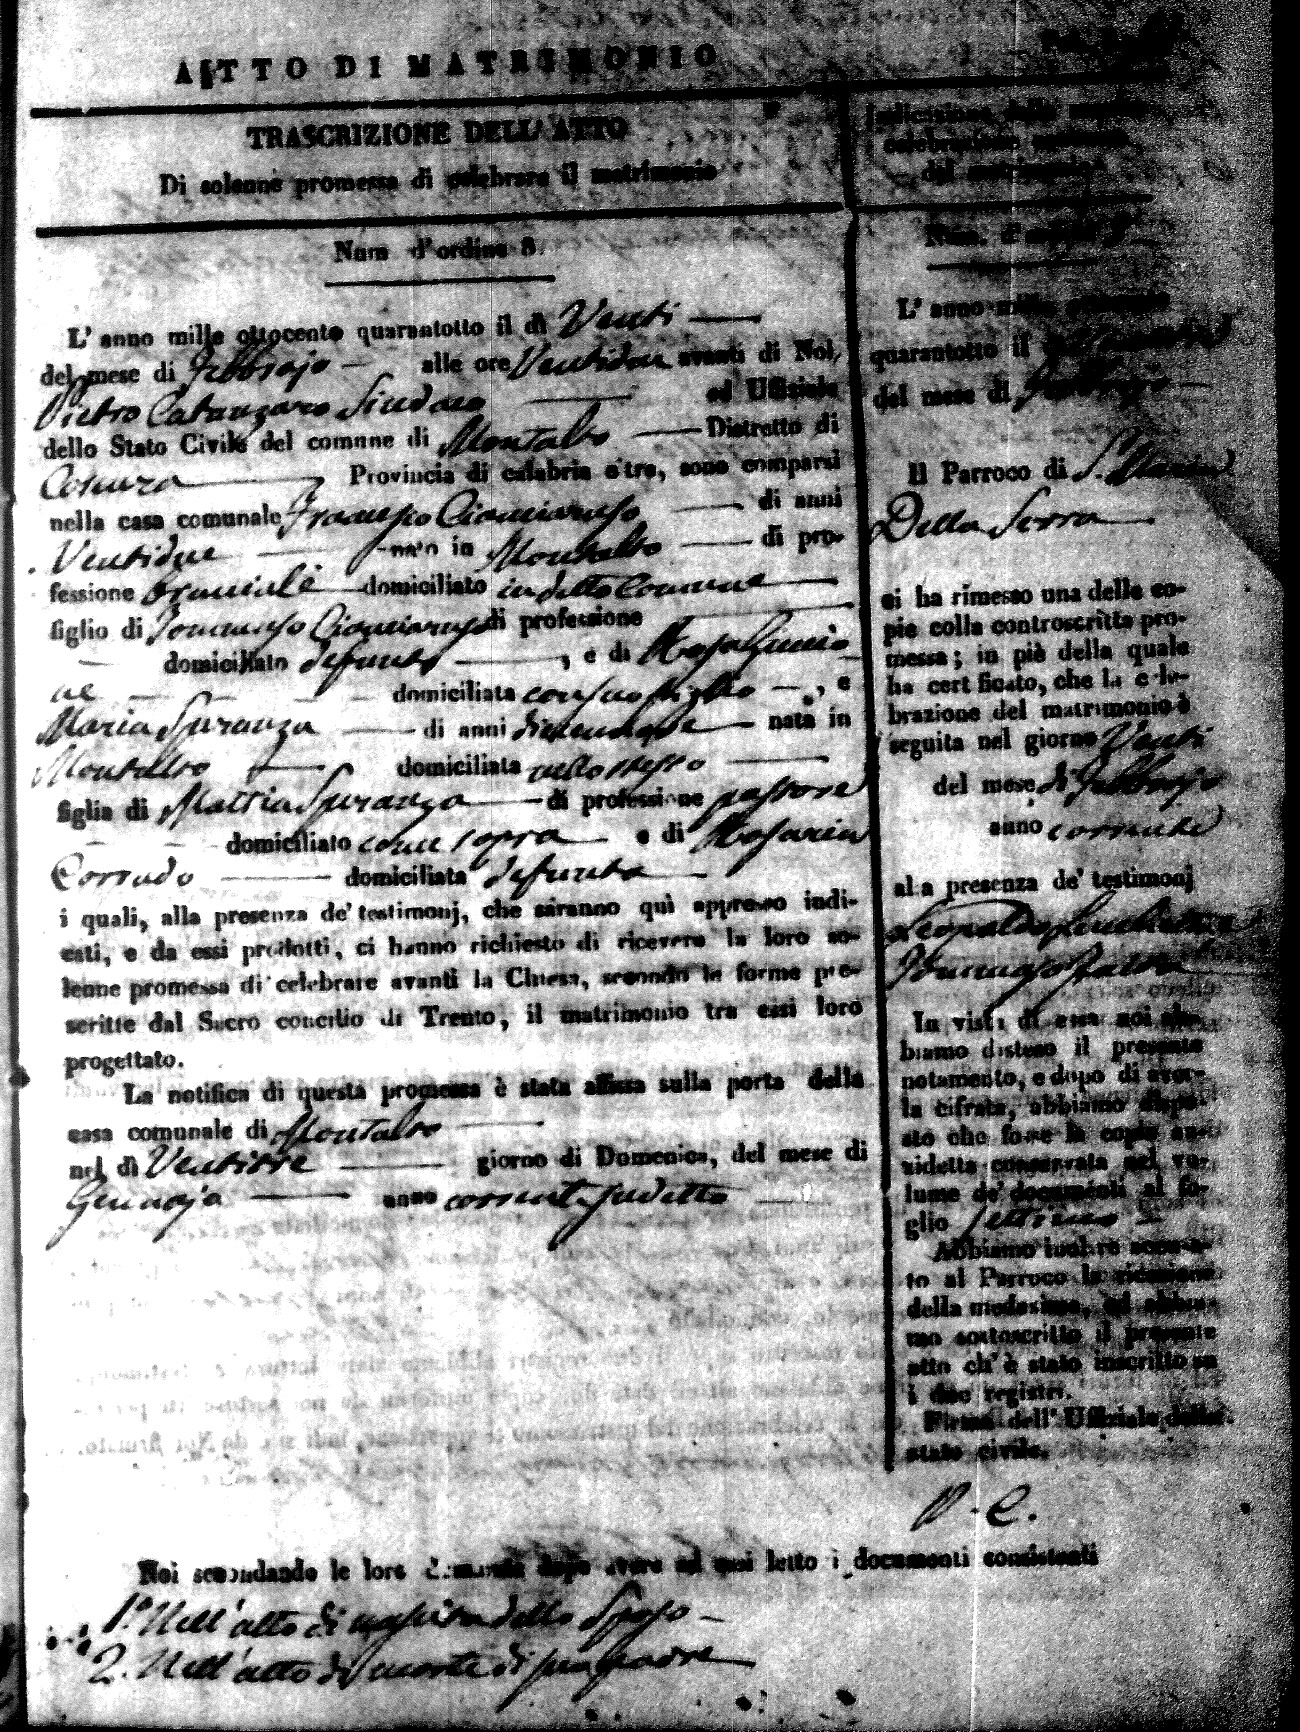 ATTO DI MATRIMONIO
TRASCRIZIONE DELL'ATTO
Di solenne promessa di celebrare il matrimonio
Num d'ordine 8.
L' anno mille ottocento quarantotto il dì Venti
del mese di Febbrajo alle ore Ventidue avanti di Noi,
Pietro Catanzaro Sindaco ed Uffiziale
dello Stato Civile del comune di Montalto Distretto di
Cosenza Provincia di calabria citra, sono comparsi
nella casa comunale Francesco di anni
Ventidue nato in Montalto di pro-
fessione Bracciale domiciliato in detto Comune
figlio di Tommaso di professione
domiciliato defunto, e di Rosa
domiciliata con suo figlio, e
Maria Speranza di anni nata in
Montalto domiciliata nello stesso
figlia di Mattia Speranza di professione pastore
domiciliato come sopra e di Rosaria
Corrado domiciliata defunta
i quali, alla presenza de' testimonj, che saranno quì appresso indi-
cati, e da essi prodotti, ci hanno richiesto di ricevere la loro so-
lenne promessa di celebrare avanti la Chiesa, secondo le forme pre-
scritte dal Sacro concilio di Trento, il matrimonio tra essi loro
progettato.
La notifica di questa promessa è stata affissa sulla porta della
casa comunale di Montalto
nel dì Ventitre giorno di Domenica, del mese di
Gennajo anno corrente sudetto
Indicazione della
celebrazione
del matrimonio
Num. d'ordine 8
L' anno mille ottocento
quarantotto il
del mese di Febbrajo
Il Parroco di S. Maria
Della Serra
ci ha rimesso una delle co-
pie colla controscritta pro-
messa; in piè della quale
ha certificato, che la cele-
brazione del matrimonio è
seguita nel giorno Venti
del mese di Febbrajo
anno corrente
alla presenza de' testimonj
Leopoldo
Tommaso
In vista di essa noi ab-
biamo disteso il presente
notamento, e dopo di aver-
la cifrata, abbiamo dispo-
sto che fosse la copia anzi
zidetta conservata nel vo-
lume de' documenti al fo-
glio settimo
Abbiamo inoltre accusa-
to al Parroco la ricezione
della medesima, ed abbia-
mo sottoscritto il presente
atto ch' è stato inscritto su
i due registri.
Firma dell' Uffiziale dello
stato civile.
P. C.
Noi secondando le loro domanda dopo avere ad essi letto i documenti consistenti
1.° Nell' atto di nascita dello Sposo
2. Nell' atto di morte di suo padre